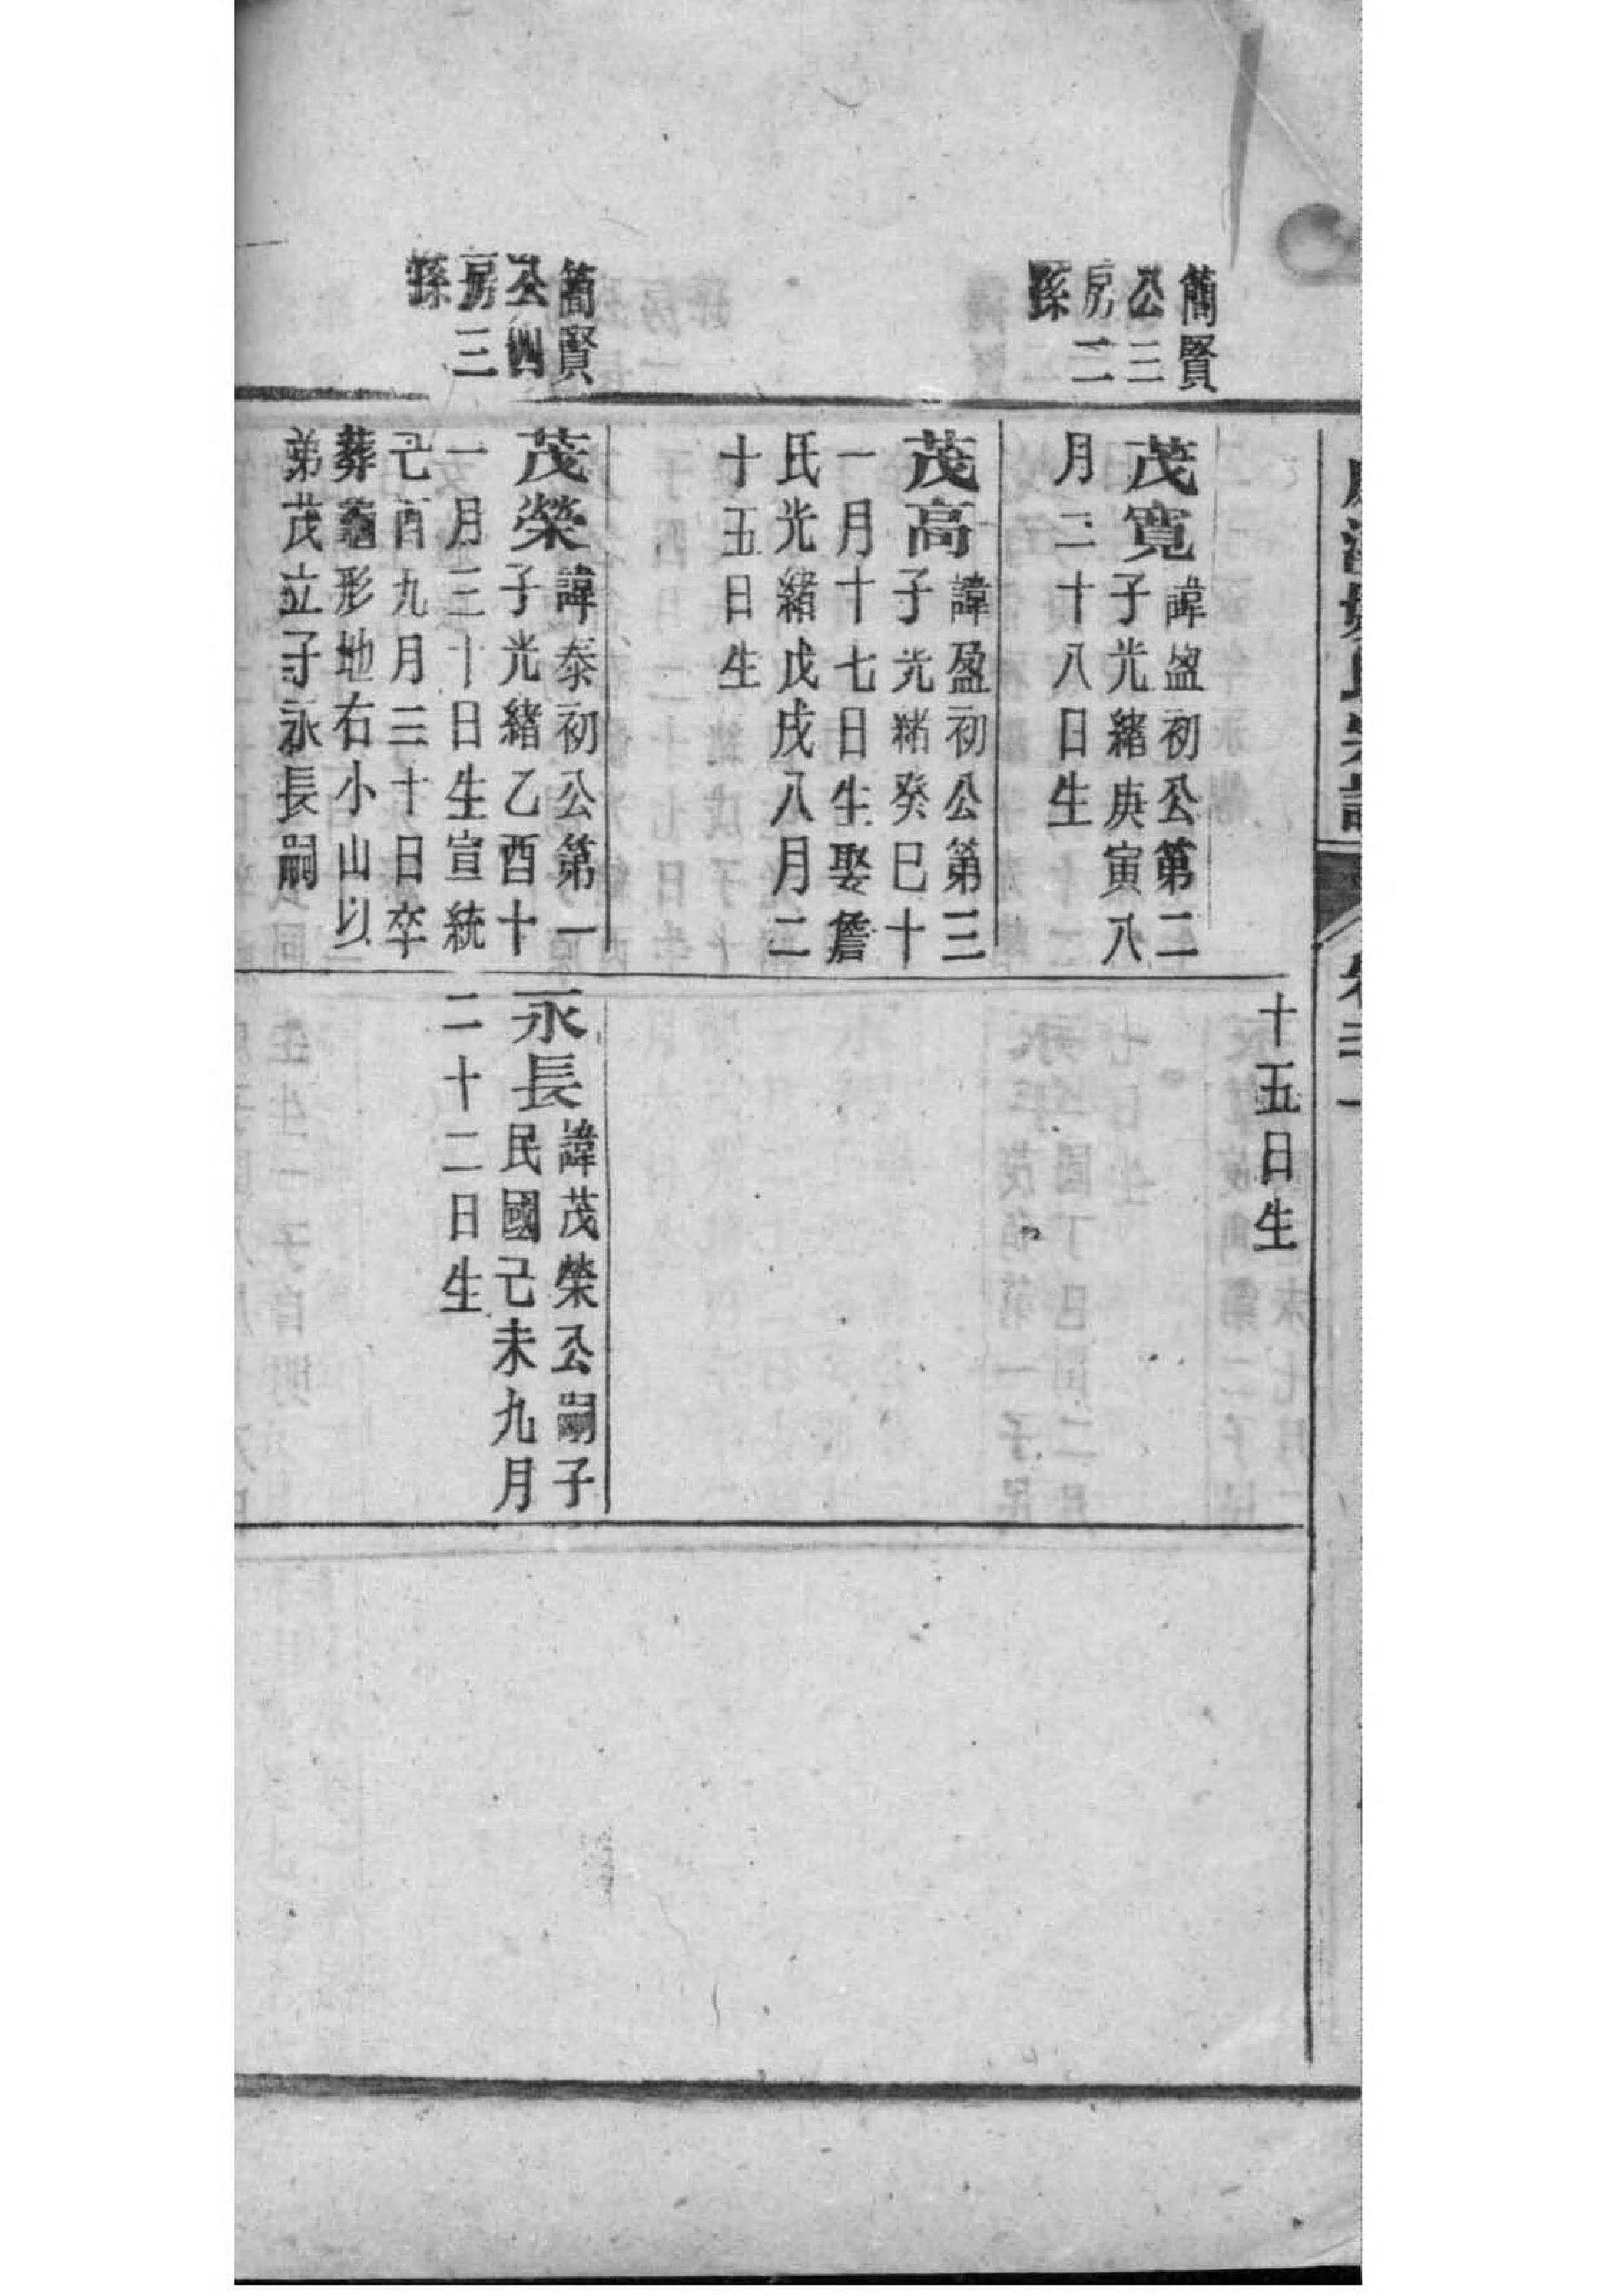 簡賢
公三
房二
孫
茂寬諱盈初公第二
子光緒庚寅八
月二十八日生
茂高諱盈初公第三
子光緒癸巳十
一月十七日生娶詹
氏光緒戊戌八月二
十五日生
簡賢
公四
房三
孫
茂榮諱泰初公第一
子光緒乙酉十
一月三十日生宣統
己酉九月三十日卒
葬龜形地右小山以
弟茂立子永長嗣
十五日生
永長諱茂榮公嗣子
民國己未九月
二十二日生